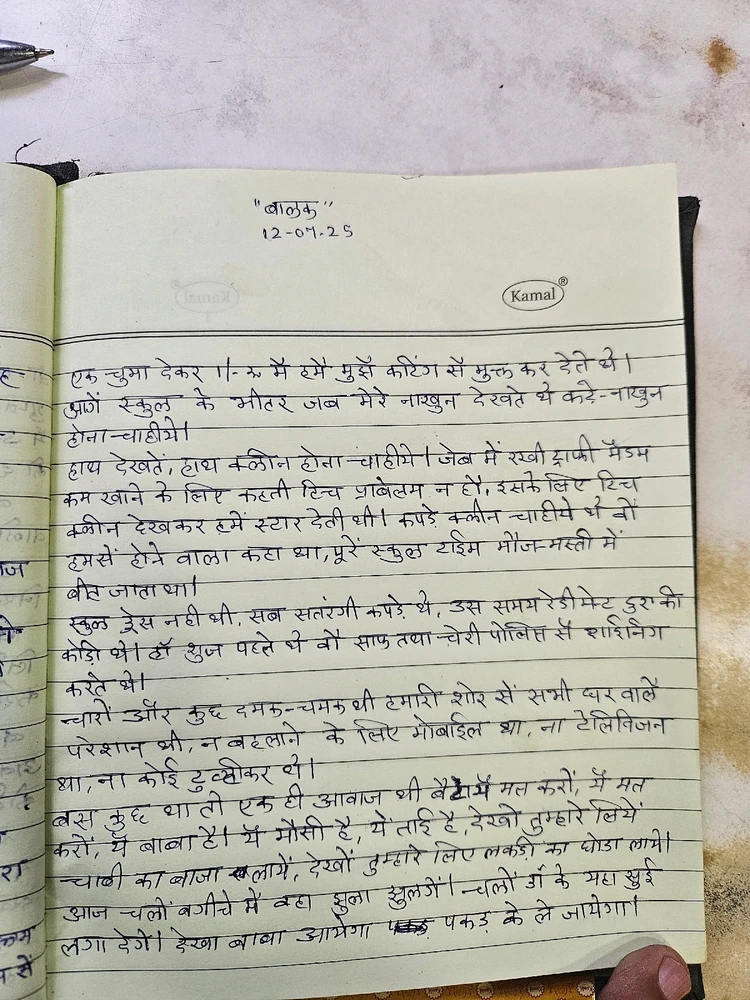 "बालक"
12-07-25
Kamal®
एक चुमा देकर 1/- रू में हमें मुझें कटिंग सें मुक्त कर देते थे।
आगें स्कुल के भीतर जब मेरे नाखुन देखते थे कटे-नाखुन
होना-चाहीये।
हाथ देखतें, हाथ क्लीन होना-चाहीये। जेब में रखी ट्राफी मॅडम
कम खाने के लिए कहती टिच प्राबेलम न हों, इसके लिए टिच
क्लीन देखकर हमें स्टार देती थी। कपडे क्लीन चाहीये थे वों
हमसें होने वाला कहा था, पूरें स्कुल टाईम मौज-मस्ती में
बीत जाता था।
स्कुल ड्रेस नही थी, सब सतरंगी कपडे थे, उस समय रेडीमेट दुर की
कोड़ी थे। हाँ शुज पहते थे वों साफ तथा चेरी पोलिस सें शाईनिंग
करते थे।
चारों ऑर कुछ दमक-चमक थी हमारी शोर सें सभी घर वाले
परेशान थी, न बहलाने के लिए मोबाईल था, ना टेलिविजन
था, ना कोई टुव्हीकर थे।
बस कुछ था तो एक ही आवाज थी बेटा यें मत करों, यें मत
करों, यें बाबा है। यें मौसी है, यें ताई है, देखो तुम्हारे लियें
चाबी का बाजा लायें, देखों तुम्हारे लिए लकडी का घोडा लायें।
आज चलों बगीचे में वहा झुला झुलगें। चलों डॉ के यहा सुई
लगा देगें। देखा बाबा आयेगा पकड़ के ले जायेगा।